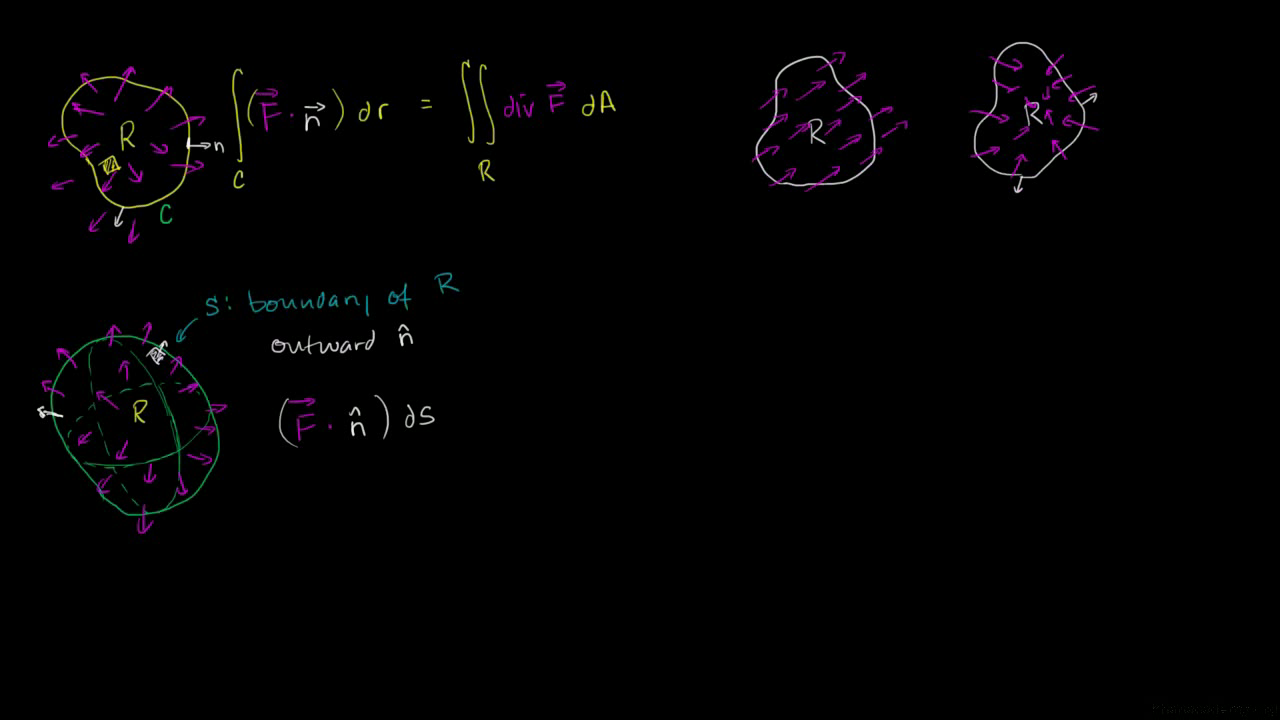 ∫_C (F⃗ · n⃗) dr = ∬_R div F⃗ dA
R
n
C
R
R
S: boundary of R
outward n̂
R
(F⃗ · n̂) dS